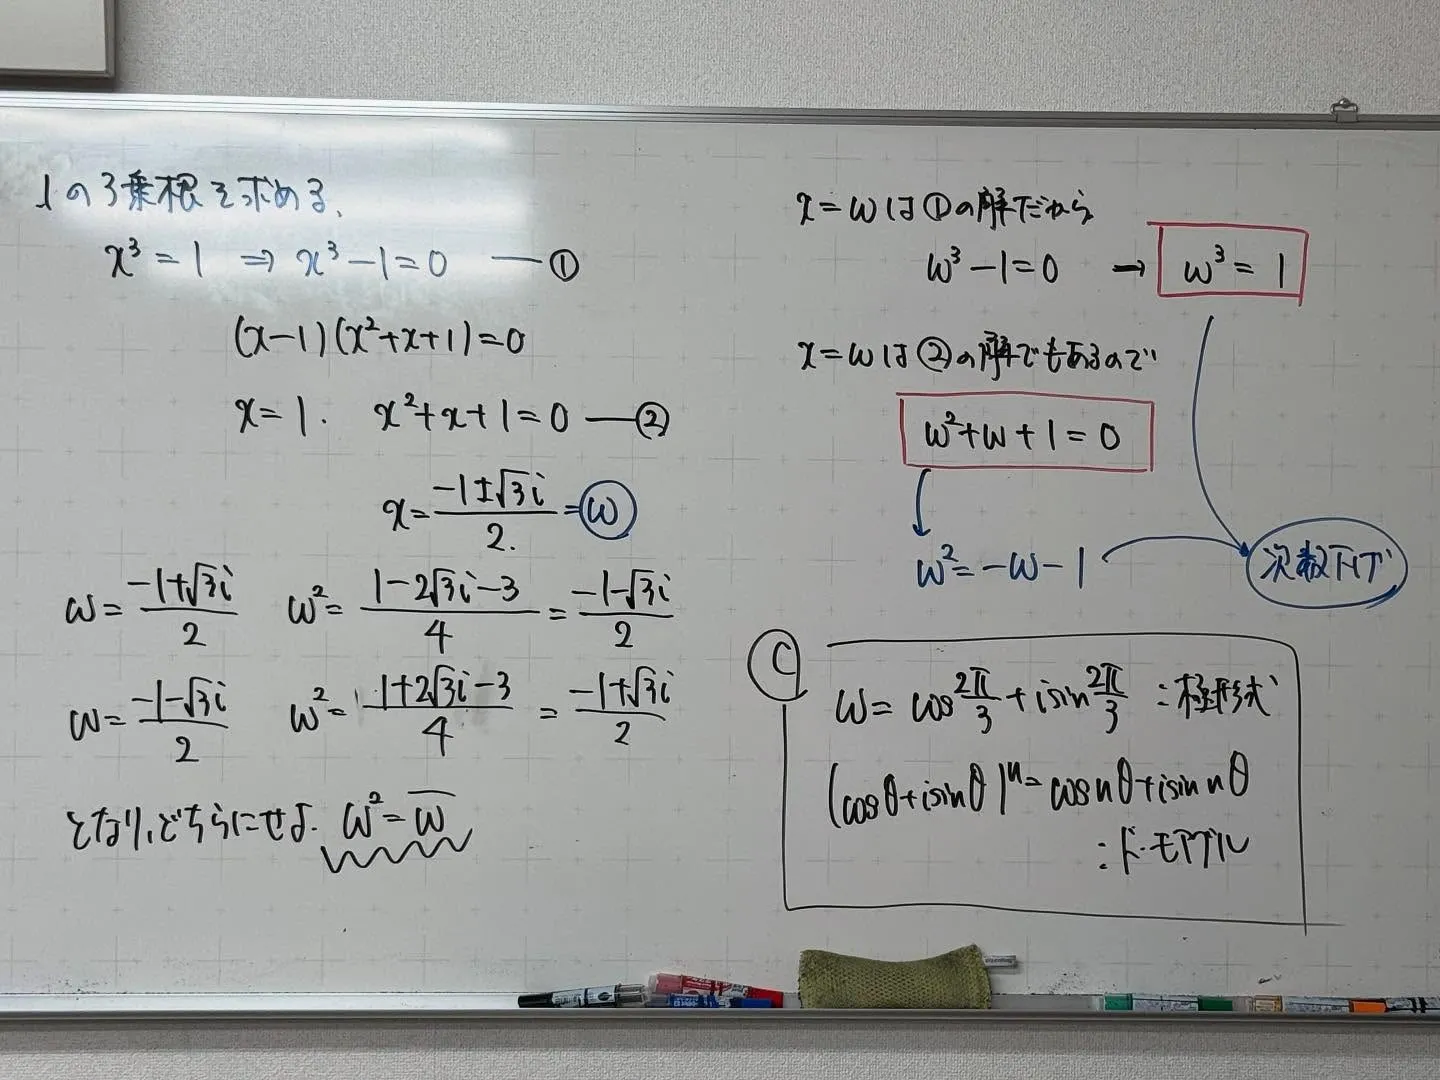 1の3乗根を求める.
x³ = 1 ⇒ x³ − 1 = 0 — ①
(x−1)(x²+x+1)=0
x = 1. x²+x+1=0 — ②
x = (−1±√3i)/2. = ω
ω = (−1+√3i)/2 ω² = (1−2√3i−3)/4 = (−1−√3i)/2
ω = (−1−√3i)/2 ω² = (1+2√3i−3)/4 = (−1+√3i)/2
となり、どちらにせよ. ω² = ω̅
x = ω は①の解だから
ω³ − 1 = 0 → ω³ = 1
x = ω は②の解でもあるので
ω²+ω+1=0
ω² = −ω−1
次数下げ
C
ω = cos 2π/3 + i sin 2π/3 : 極形式
(cosθ+isinθ)ⁿ = cos nθ + i sin nθ
: ド・モアブル